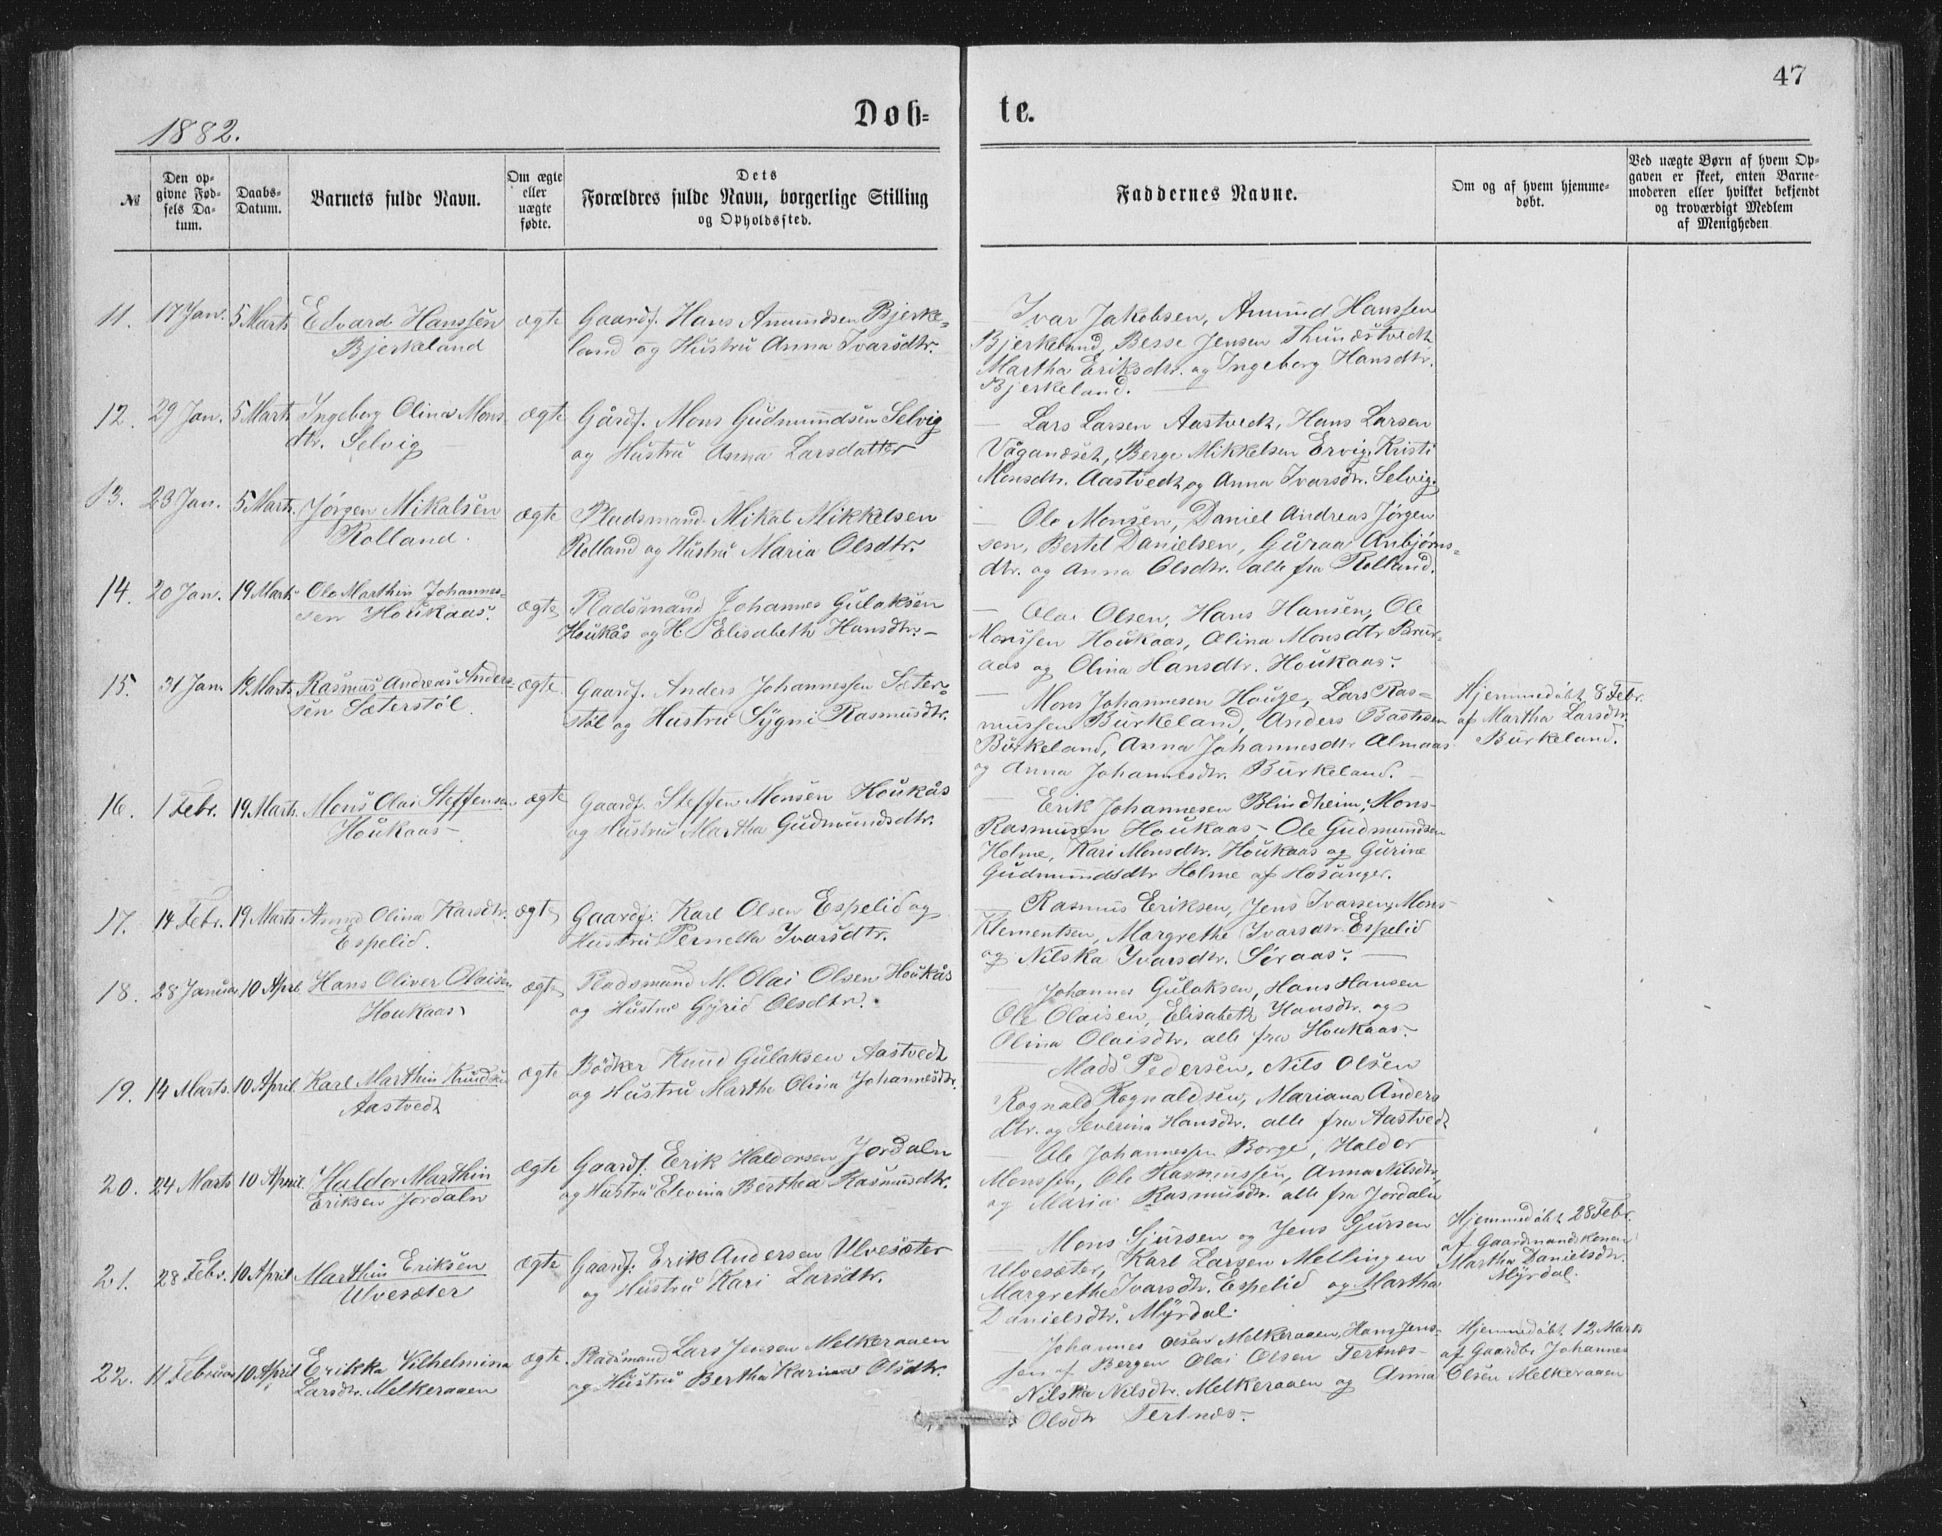 47
Døb= te.
1882.
№
Den op-
givne Fød-
sels Da-
tum.
Daabs-
Datum.
Barnets fulde Navn.
Om ægte
eller
uægte
fødte.
Dets
Forældres fulde Navn, borgerlige Stilling
og Opholdssted.
Faddernes Navne.
Om og af hvem hjemme-
døbt.
Ved uægte Børn af hvem Op-
gaven er skeet, enten Barne-
moderen eller hvilket bekjendt
og troværdigt Medlem
af Menigheden
11. 17 Jan. 5 Marts Edvard Hanssen ægte Gaardf. Hans Amundsen Bjerke=
Bjerkeland land og Hustru Anna Ivarsdtr.
Ivar Jakobsen, Amund Hanssen
Bjerkeland, Besse Jensen Thunæstvedt
Martha Eriksdtr. og Ingeborg Hansdtr.
Bjerkeland.
12. 29 Jan. 5 Marts Ingeborg Olina Mons- ægte Gårdf. Mons Gudmundsen Selvig
dtr. Selvig og Hustru Anna Larsdatter
Lars Larsen Aastvedt, Hans Larsen
Vågandset, Berge Mikkelsen Ervig, Kristi
Monsdtr. Aastvedt, og Anna Ivarsdtr. Selvig.
13. 23 Jan. 5 Marts. Jørgen Mikalsen ægte Pladsmand Mikal Mikkelsen
Rolland. Rolland og Hustru Maria Olsdtr.
Ole Monsen, Daniel Andreas Jørgen
sen, Bertel Danielsen, Guraa Anbjørns=
dtr. og Anna Olsdtr. alle fra Rolland.
14. 20 Jan. 19 Marts Ole Marthin Johannes= ægte Pladsmand Johannes Gulaksen
sen Houkaas. Houkås og H. Elisabeth Hansdtr. —
Olai Olsen, Hans Hansen, Ole
Monssen Houkaas, Olina Monsdtr Brur-
aas og Olina Hansdtr. Houkaas.
15. 31 Jan. 19 Marts Rasmus Andreas Anders= ægte Gaardf. Anders Johannessen Sæter=
sen Sæterstöl. stöl og Hustru Sygni Rasmusdtr.
Mons Johannesen Houge, Lars Ras=
mussen Burkeland, Anders Bastisen
Burkeland, Anna Johannesdtr Almaas
og Anna Johannesdtr. Burkeland. —
Hjemmedøbt 8 Febr.
af Martha Larsdtr.
Burkeland.
16. 1 Febr. 19 Marts. Mons Olai Steffensen ægte Gaardf. Steffen Monsen Houkås
Houkaas og Hustru Martha Gudmundsdtr.
Erik Johannesen Blindheim, Mons
Rasmusen Houkaas, Ole Gudmundsen
Holme, Kari Monsdtr. Houkaas og Gurine
Gudmundsdtr Holme af Hosanger.
17. 14 Febr. 19 Marts Anna Olina Karsdtr. ægte Gaardf: Karl Olsen Espelid og
Espelid. Hustru Pernella Ivarsdtr.
Rasmus Eriksen, Jens Ivarsen, Mons
Klementsen, Margrethe Ivarsdtr. Espelid
og Nilska Ivarsdtr. Søraas. —
18. 28 Januar 10 April. Hans Oliver Olaisen ægte Pladsmand M. Olai Olsen Houkås
Houkaas og Hustru Gyrid Olsdtr.
Johannes Gulaksen, Hans Hansen
Ole Olaisen, Elisabeth Hansdtr. og
Olina Olaisdtr. alle fra Houkaas.
19. 14 Marts. 10 April Karl Marthin Knudsen ægte Bödker Knud Gulaksen Aastvedt
Aastvedt og Hustru Martha Olina Johannesdtr.
Mads Pedersen, Nils Olsen
Rognald Rognaldsen, Mariana Anders
dtr. og Severina Hansdtr. alle fra Aastvedt
20. 24 Marts 10 April. Haldor Marthin ægte Gaardf. Erik Haldorsen Jordaln
Eriksen Jordaln og Hustru Elevina Berthea Rasmusdtr.
Ole Johannessen Borge, Haldor
Monssen, Ole Rasmussen, Anna Nilsdtr,
og Maria Rasmusdtr. alle fra Jordaln
21. 28 Febr. 10 April Marthin Eriksen ægte Gaardf: Erik Andersen Ulvesæter
Ulvesæter og Hustru Kari Larsdtr.
Mons Sjursen og Jens Sjursen
Ulvesæter, Karl Larsen Mellingen
Margrethe Ivarsdtr. Espelid og Martha
Danielsdtr. Myrdal.
Hjemmedøbt 28 Febr.
af Gaardmandskonen
Martha Danielsdtr.
Myrdal.
22. 11 Februar 10 April Erikka Vilhelmina ægte. Pladsmand Lars Jensen Melkeraaen
Larsdtr. Melkeraaen og Hustru Bertha Karina Olsdtr.
Johannes Olsen Melkeraaen, Hans Jens-
sen af Bergen Olai Olsen Tertnes-
Nilska Nilsdtr. Melkeraaen og Anna
Olsdtr Tertnæs.
Hjemmedøbt 12 Marts
af Gaardbr. Johannes
Olsen Melkeraaen